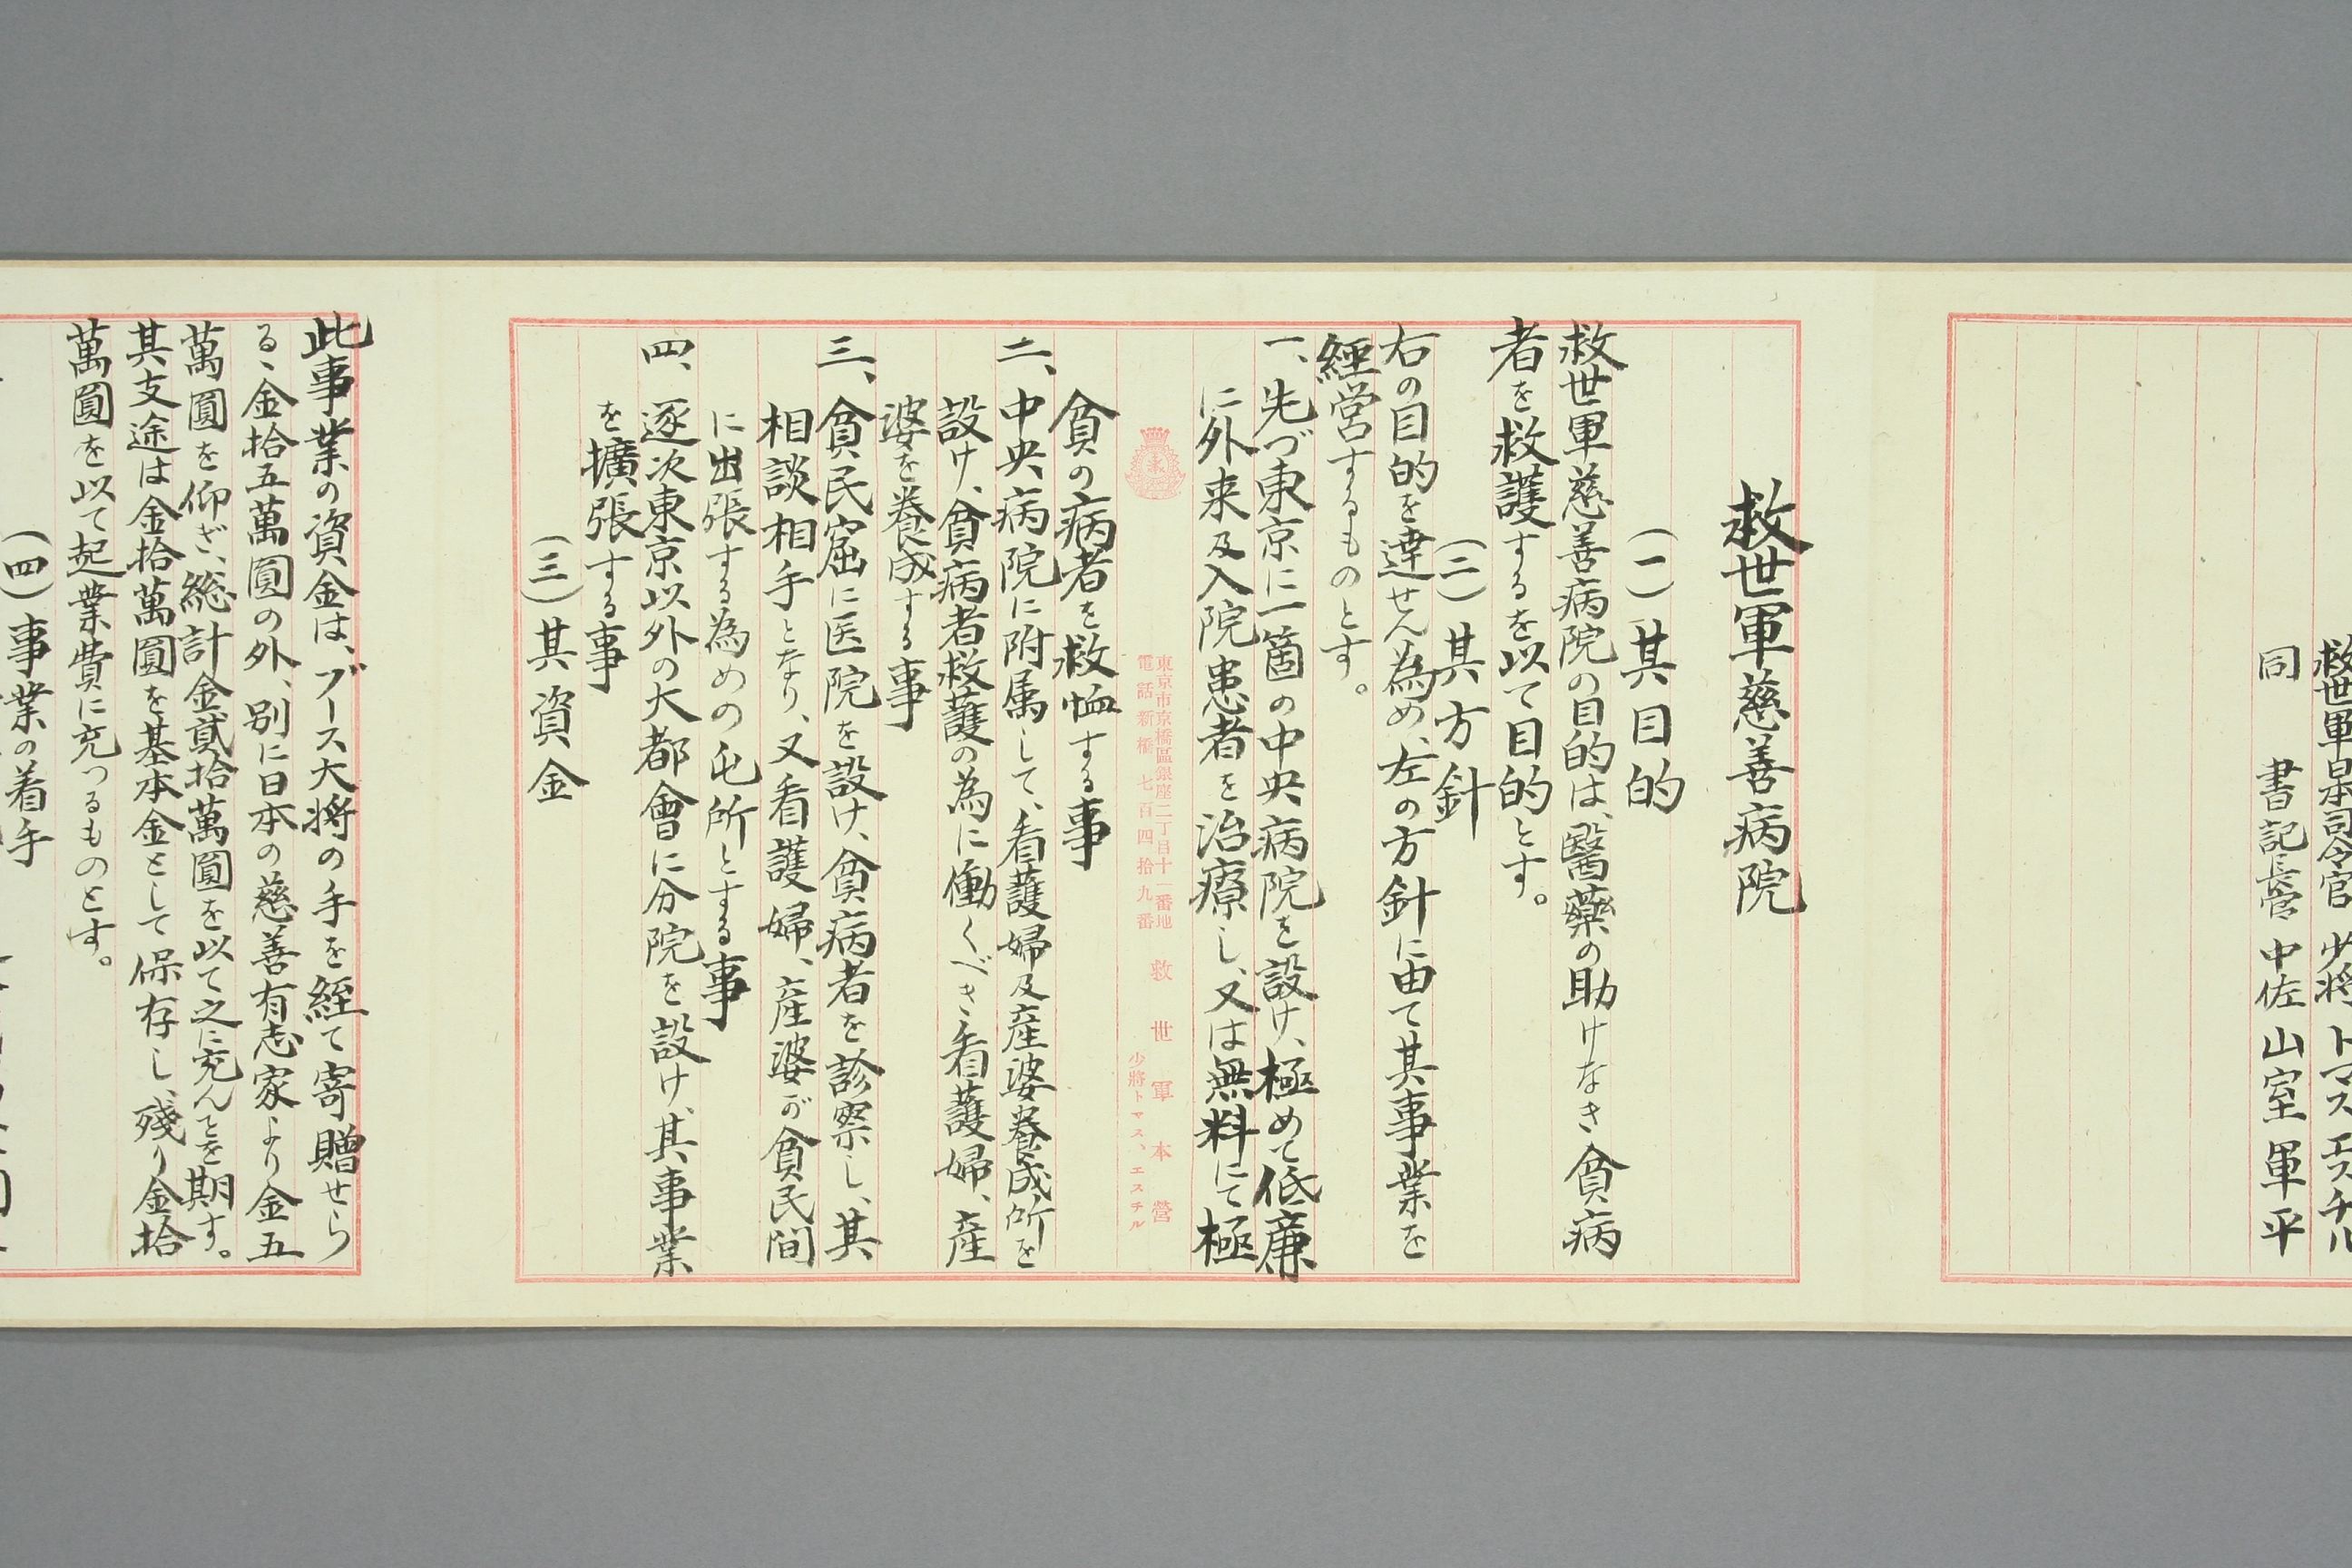 救世軍日本司令官 少将 トマス エスチル
同 書記長官 中佐 山室軍平
救世軍慈善病院
(一)其目的
救世軍慈善病院の目的は、醫藥の助けなき貧病
者を救護するを以て目的とす。
(二)其方針
右の目的を達せん為め、左の方針に由て其事業を
経営するものとす。
一、先づ東京に一箇の中央病院を設け、極めて低廉
に外来及入院患者を治療し、又は無料にて極
東京市京橋區銀座二丁目十一番地 救世軍本營
電話新橋七百四拾九番 少將トマス、エスチル
貧の病者を救恤する事
二、中央病院に附属して、看護婦及産婆養成所を
設け、貧病者救護の為に働くべき看護婦、産
婆を養成する事
三、貧民窟に医院を設け、貧病者を診察し、其
相談相手となり、又看護婦、産婆が貧民間
に出張する為めの屯所とする事
四、逐次東京以外の大都會に分院を設け、其事業
を擴張する事
(三)其資金
此事業の資金は、ブース大将の手を経て寄贈せら
るゝ金拾五萬圓の外、別に日本の慈善有志家より金五
萬圓を仰ぎ、総計金貳拾萬圓を以て之に充んとを期す。
其支途は金拾萬圓を基本金として保存し、残り金拾
萬圓を以て起業費に充つるものとす。
(四)事業の着手